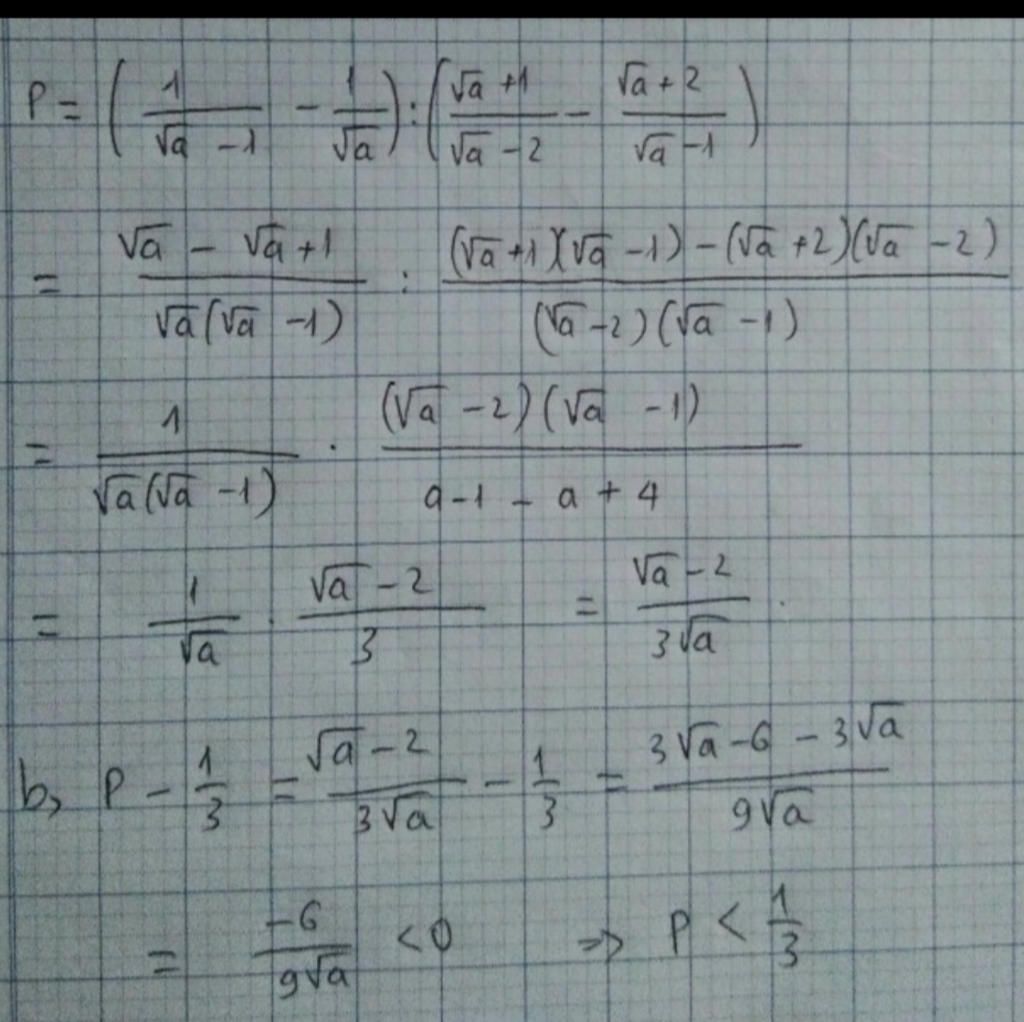 P = (1/(√a - 1) - 1/√a) : ((√a + 1)/(√a - 2) - (√a + 2)/(√a - 1))
= (√a - √a + 1)/(√a(√a - 1)) : ((√a + 1)(√a - 1) - (√a + 2)(√a - 2))/((√a - 2)(√a - 1))
= 1/(√a(√a - 1)) . ((√a - 2)(√a - 1))/(a - 1 - a + 4)
= 1/√a . (√a - 2)/3 = (√a - 2)/(3√a) .
b, P - 1/3 = (√a - 2)/(3√a) - 1/3 = (3√a - 6 - 3√a)/(9√a)
= -6/(9√a) < 0 => P < 1/3